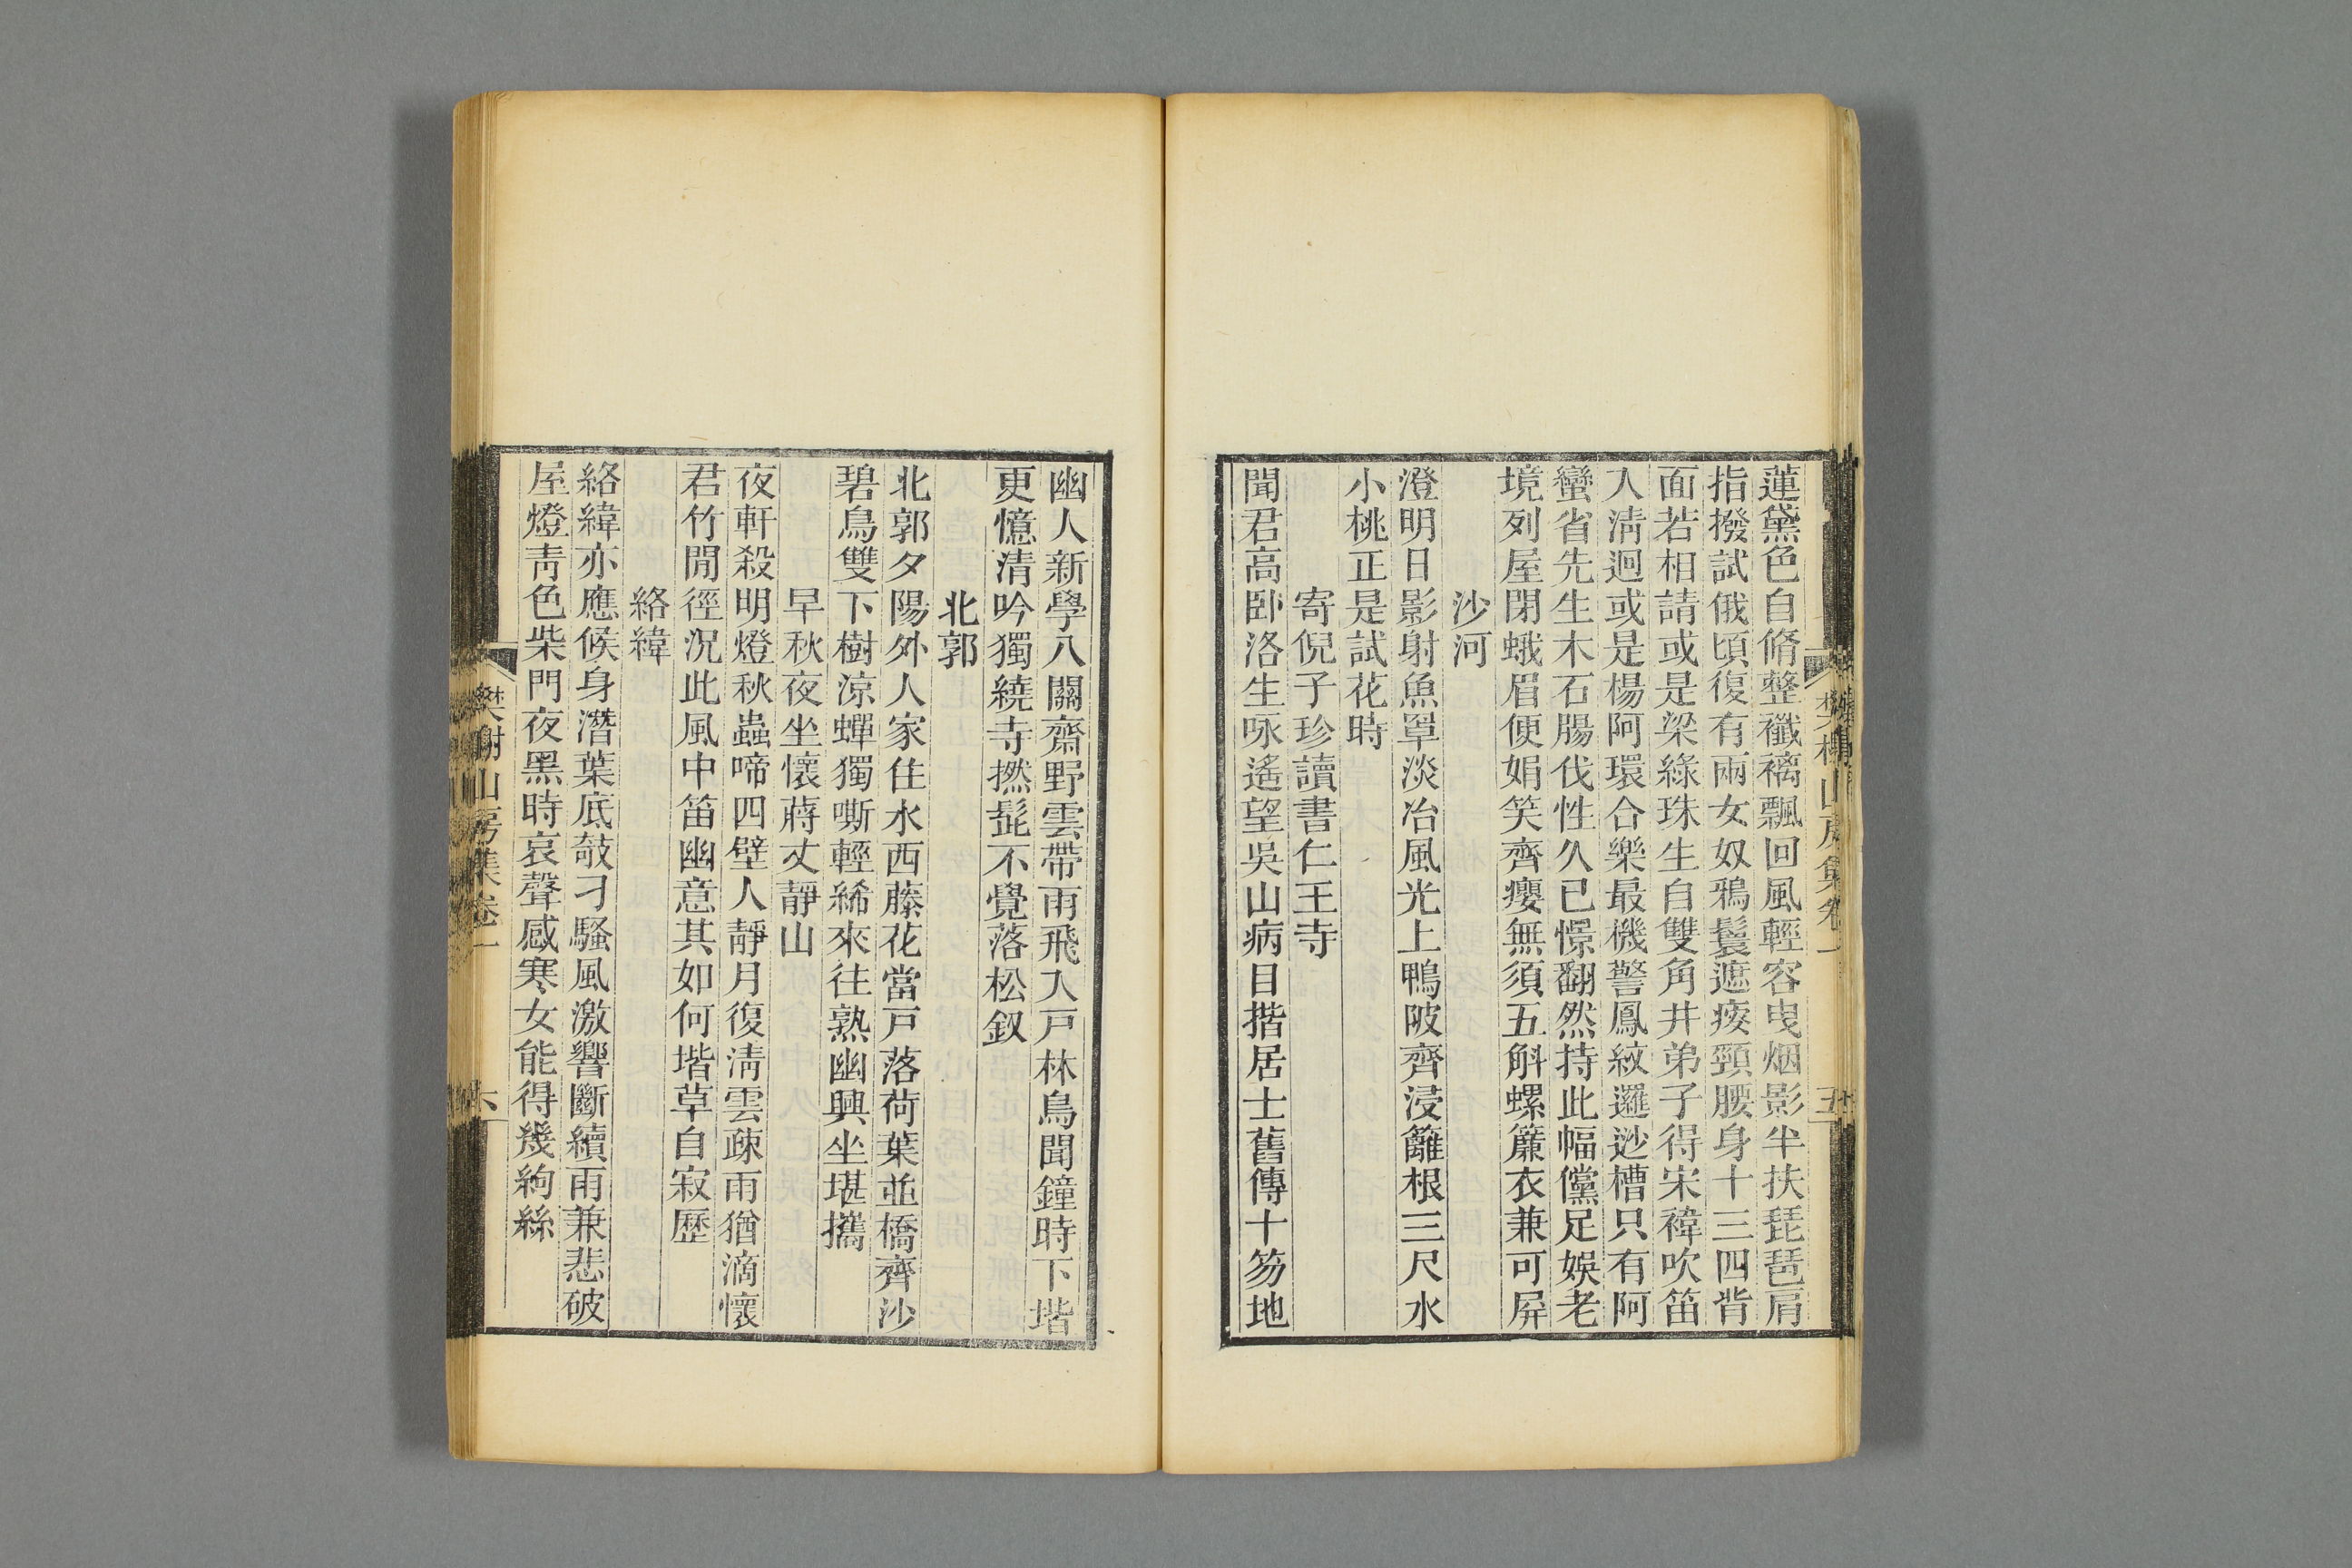 蓮黛色自脩整襳褵飄回風輕容曳烟影半扶琵琶肩
指撥試俄頃復有兩女奴鴉鬟遮痠頸腰身十三四背
面若相請或是梁綠珠生自雙角井弟子得宋褘吹笛
入淸迥或是楊阿環合樂最機警鳳紋邏逤槽只有阿
蠻省先生木石腸伐性久已憬翻然持此幅儻足娛老
境列屋閉蛾眉便娟笑齊癭無須五斛螺簾衣兼可屏
沙河
澄明日影射魚罩淡冶風光上鴨陂齊浸籬根三尺水
小桃正是試花時
寄倪子珍讀書仁王寺
聞君高臥洛生咏遙望吳山病目揩居士舊傳十笏地
幽人新學八關齋野雲帶雨飛入戸林鳥聞鐘時下堦
更憶清吟獨繞寺撚髭不覺落松釵
北郭
北郭夕陽外人家住水西藤花當戸落荷葉並橋齊沙
碧鳥雙下樹涼蟬獨嘶輕絺來往熟幽興坐堪攜
早秋夜坐懷蔣丈靜山
夜軒殺明燈秋蟲啼四壁人靜月復淸雲疎雨猶滴懷
君竹閒徑況此風中笛幽意其如何堦草自寂歷
絡緯
絡緯亦應候身潛葉底敧刁騷風激響斷續雨兼悲破
屋燈靑色柴門夜黑時哀聲感寒女能得幾絇絲
樊榭山房集卷一
六